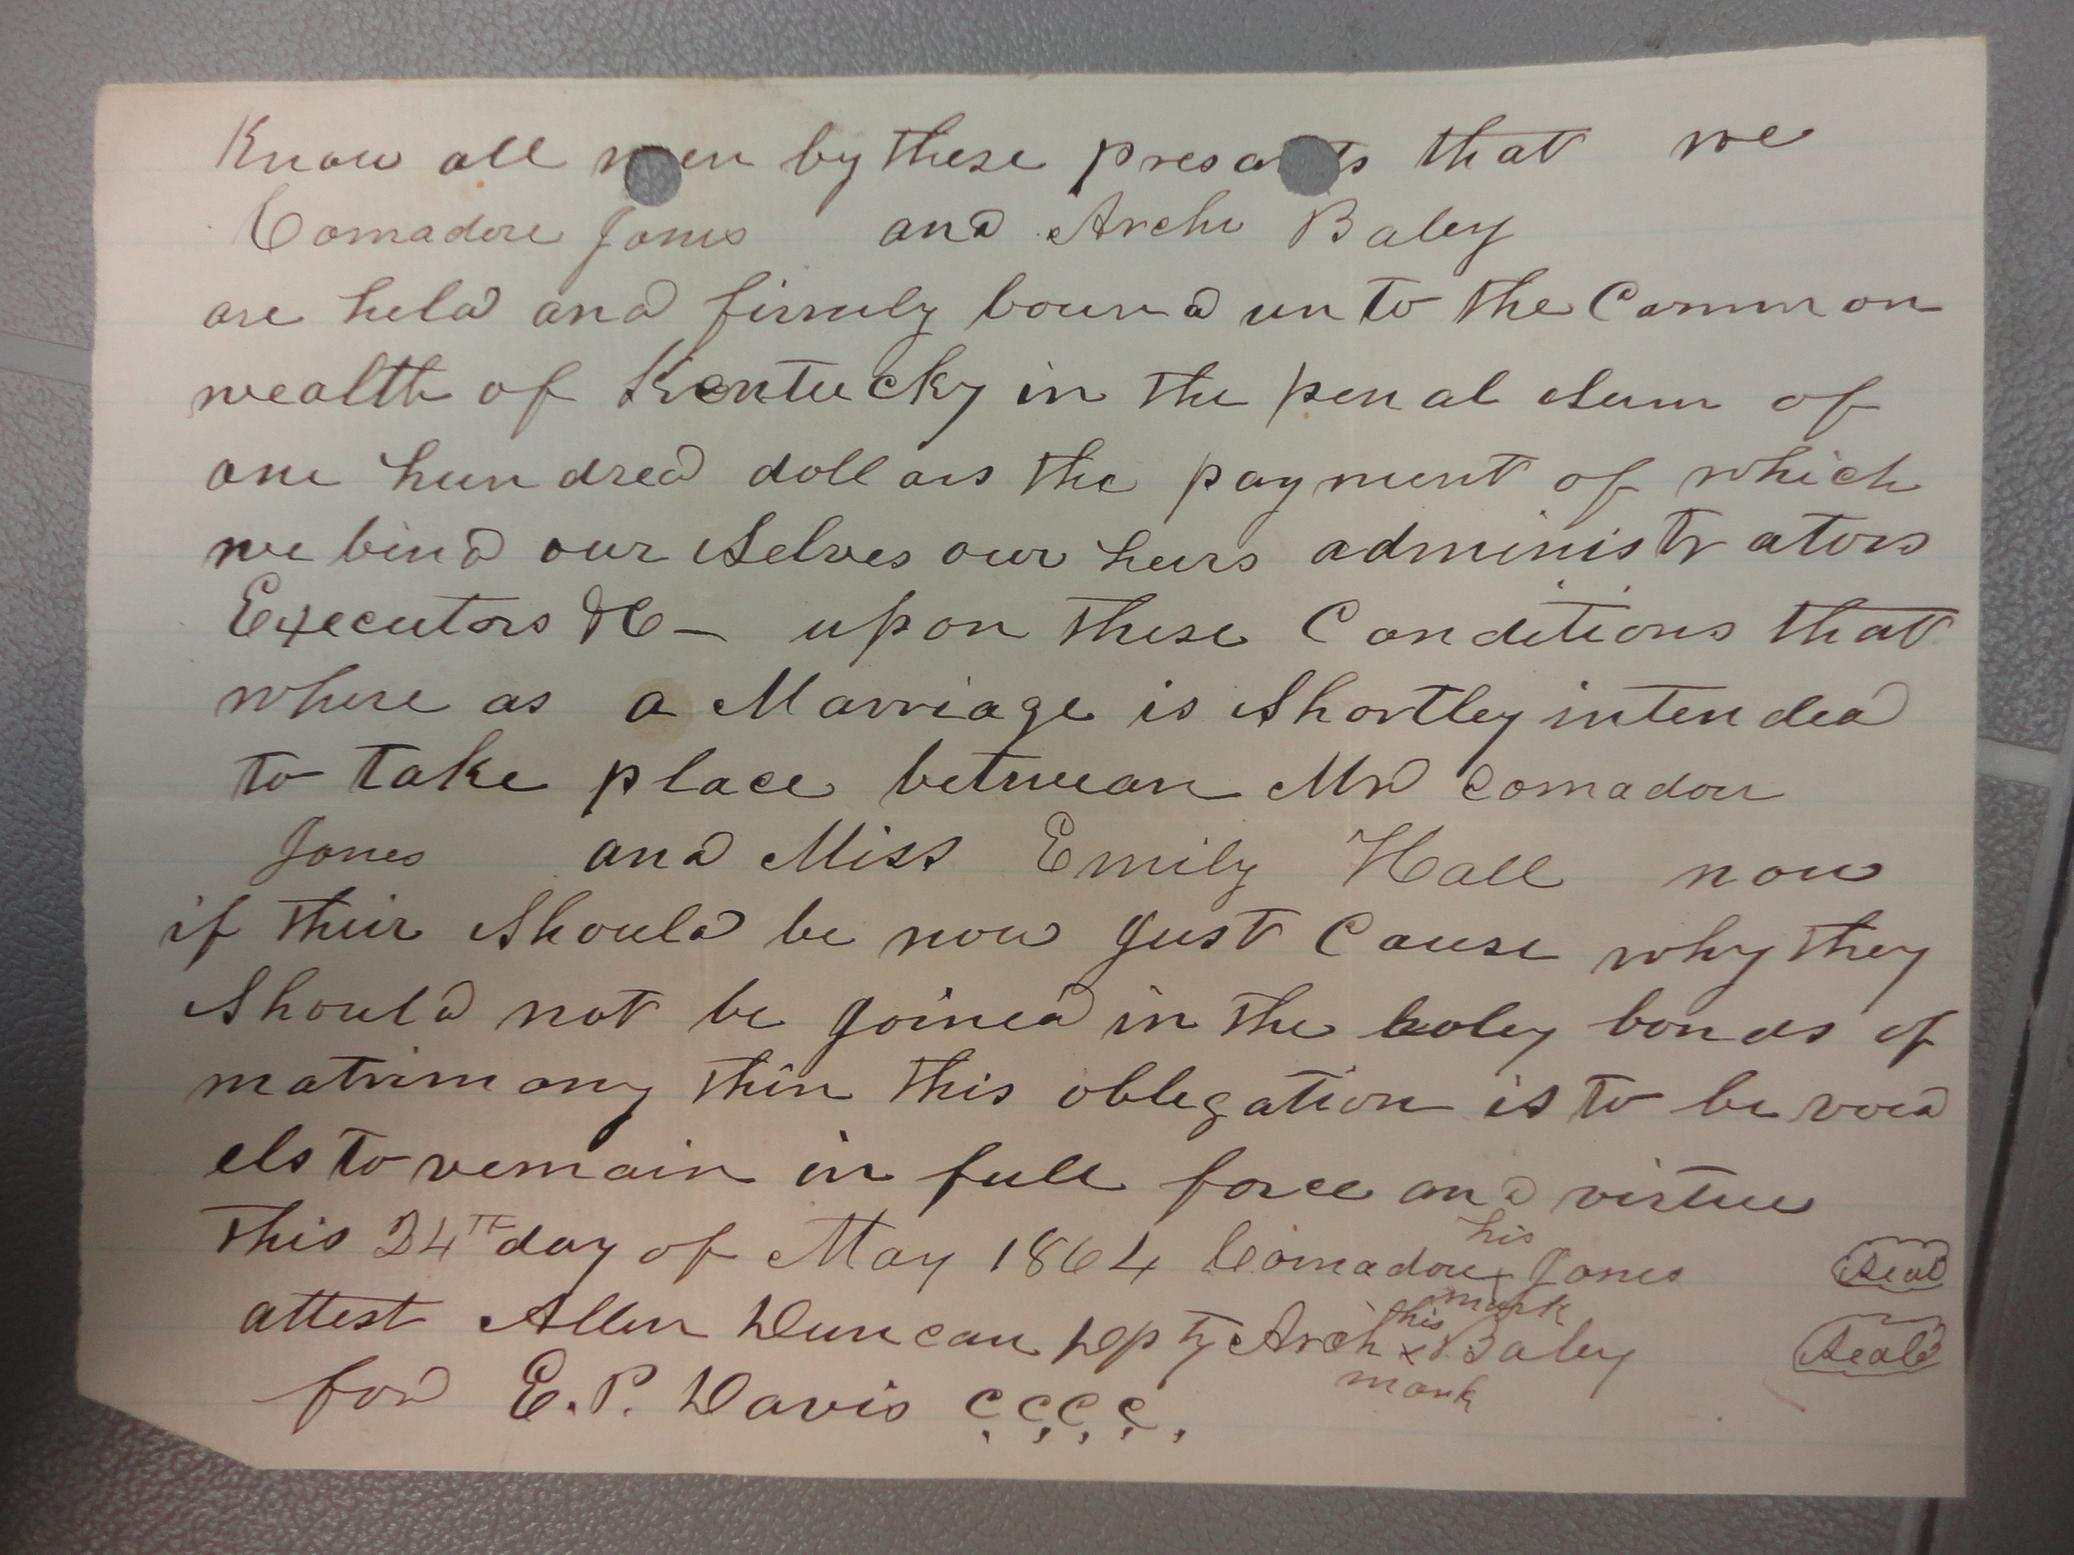 Know all men by these presants that we
Comadore Jones and Archi Baley
are held and firmly bound unto the Common
wealth of Kentucky in the penal sum of
one hundred dollars the payment of which
we bind our selves our heirs administrators
Executors &C – upon these Conditions that
where as a Marriage is shortley intended
to take place betwean Mr Comadore
Jones and Miss Emily Hall now
if their should be now Just Cause why they
should not be Joined in the holey bonds of
matrimony then this oblegation is to be void
els to remain in full force and virtue
this 24th day of May 1864 Comadore his x mark Jones Seal
attest Allen Duncan Dpty Arch his x mark Baley Seal
for E. P. Davis C.C.C.C.